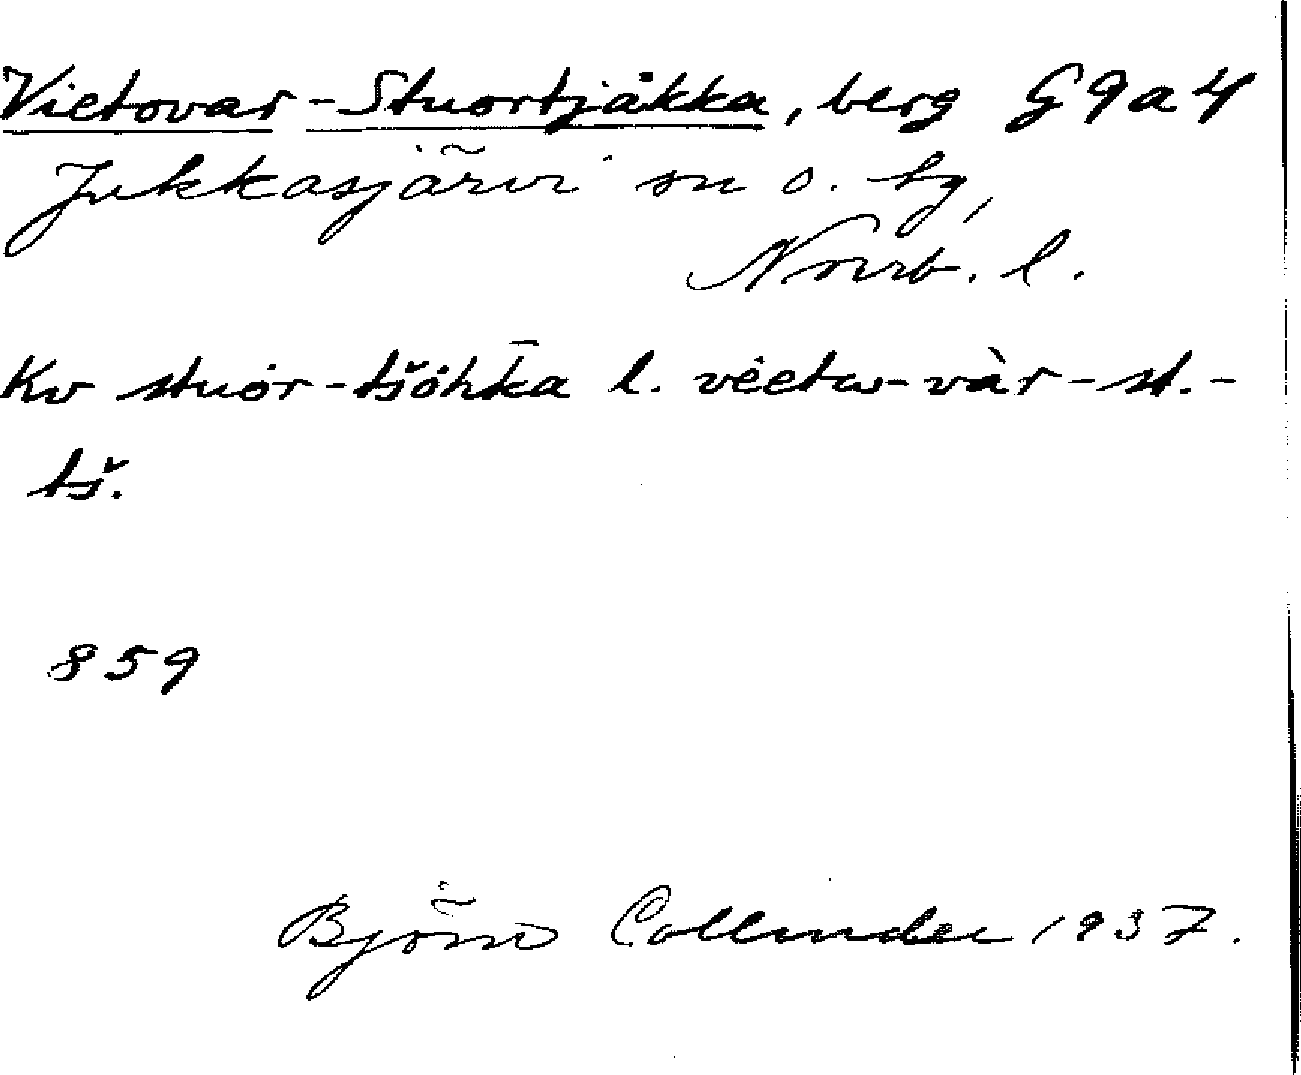 Vietovar-Stuortjåkka, berg G9a4
Jukkasjärvi sn o. tg,
Norrb. l.
Kv stuȯr-tšȯhk̄a l. vêetw-vàr-st.-
tš.
859
Björn Collinder 1937.